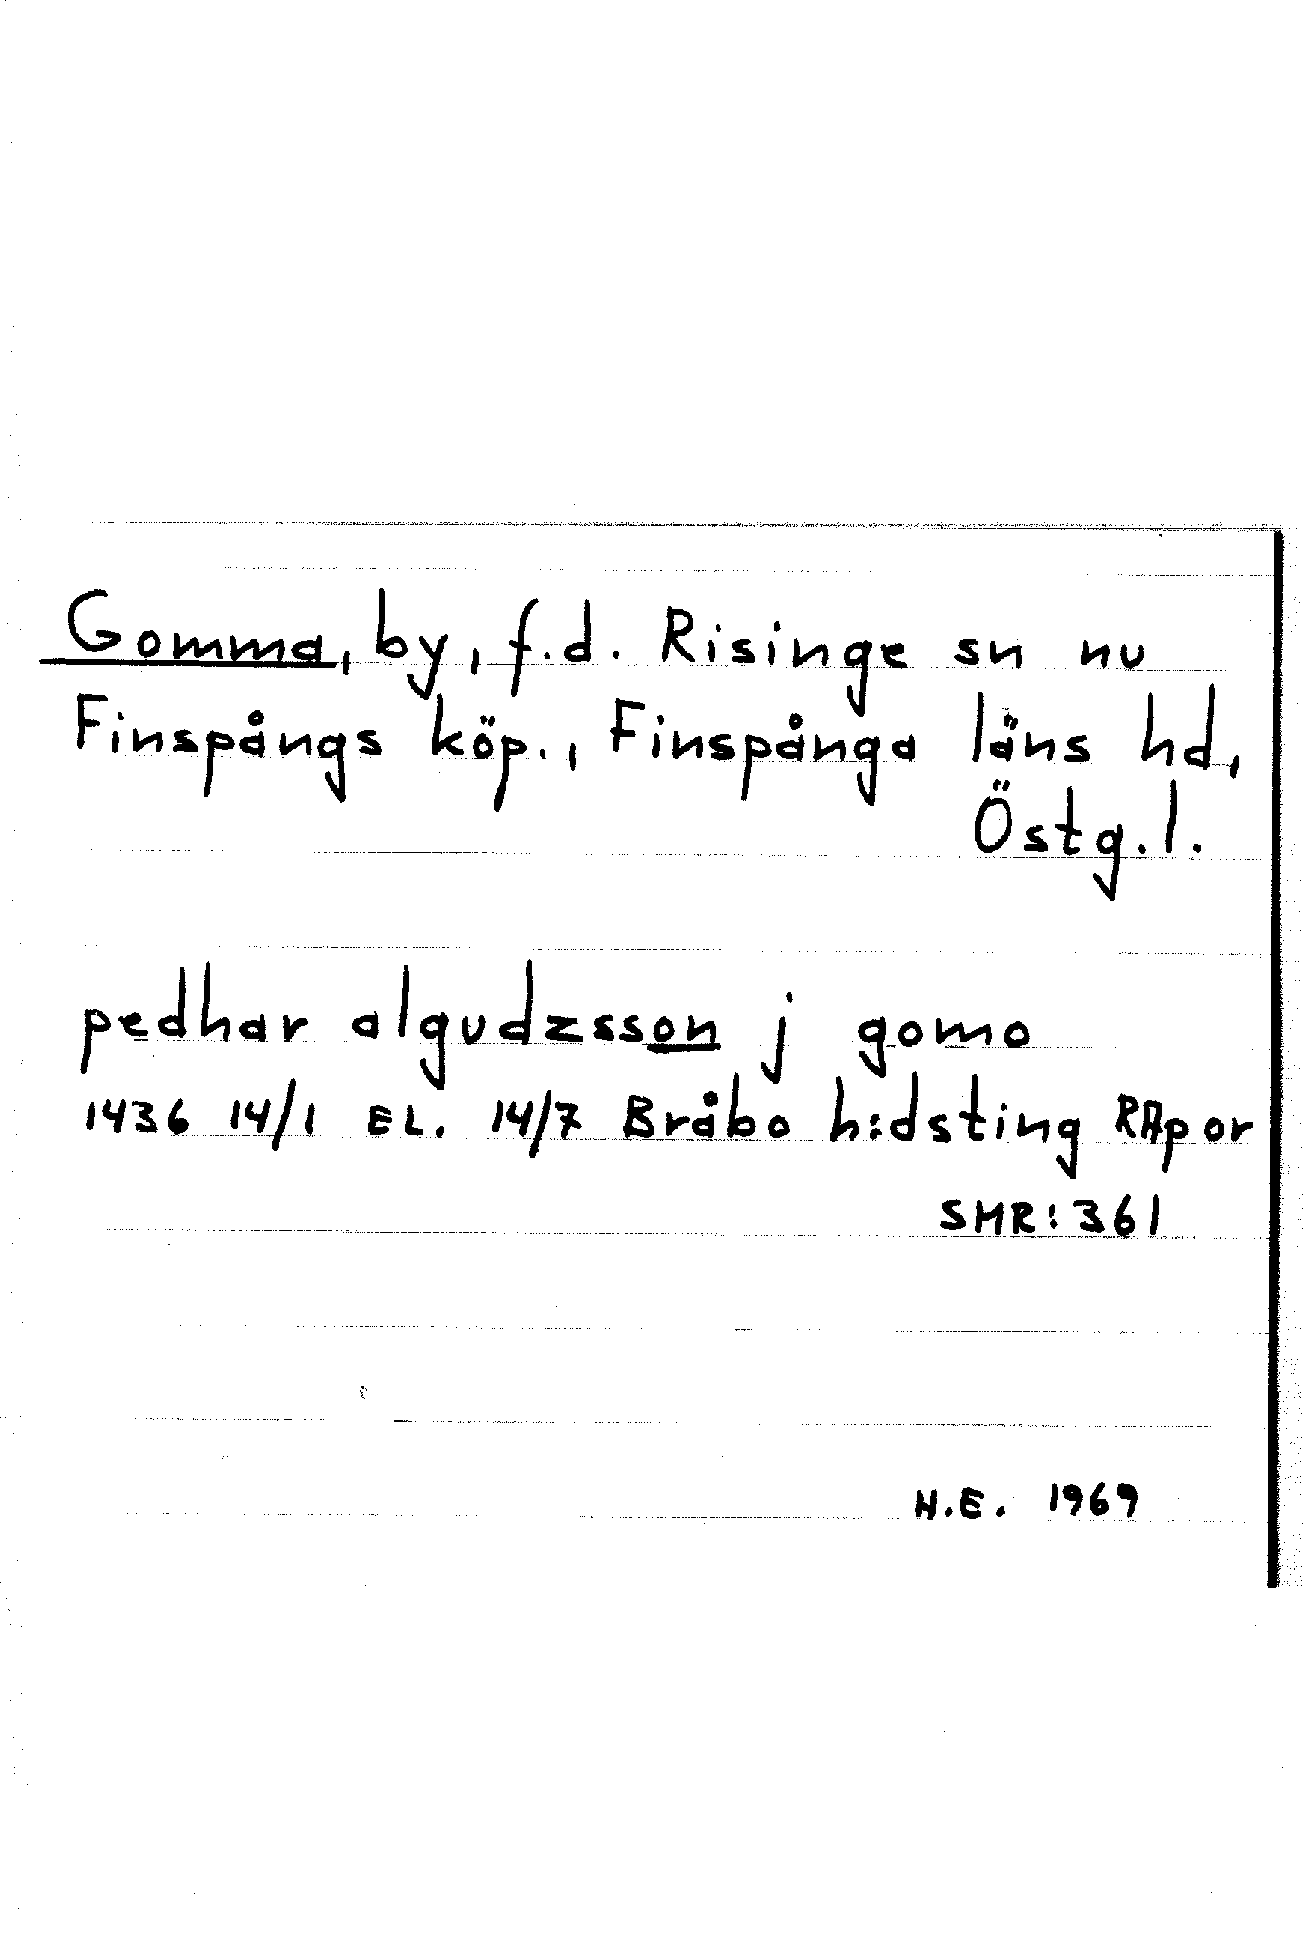 Gomma, by, f.d. Risinge sn nu
Finspångs köp., Finspånga läns hd,
Östg.l.
pedhar algudzsson j gomo
1436 14/1 EL. 14/7 Bråbo h:dsting RApor
SMR:361
H.E. 1969